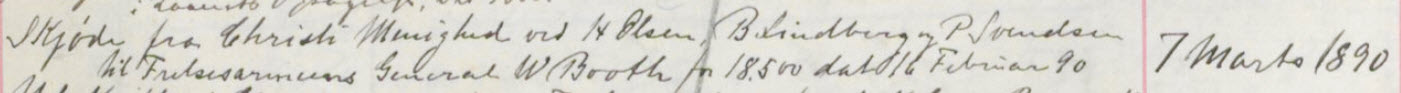 Skjøde fra Christi Menighed ved H Olsen, B. Lindberg og P. Svendsen
til Frelsesarmeens General W Booth for 18.500 dat 16 Februar 90
7 Marts 1890